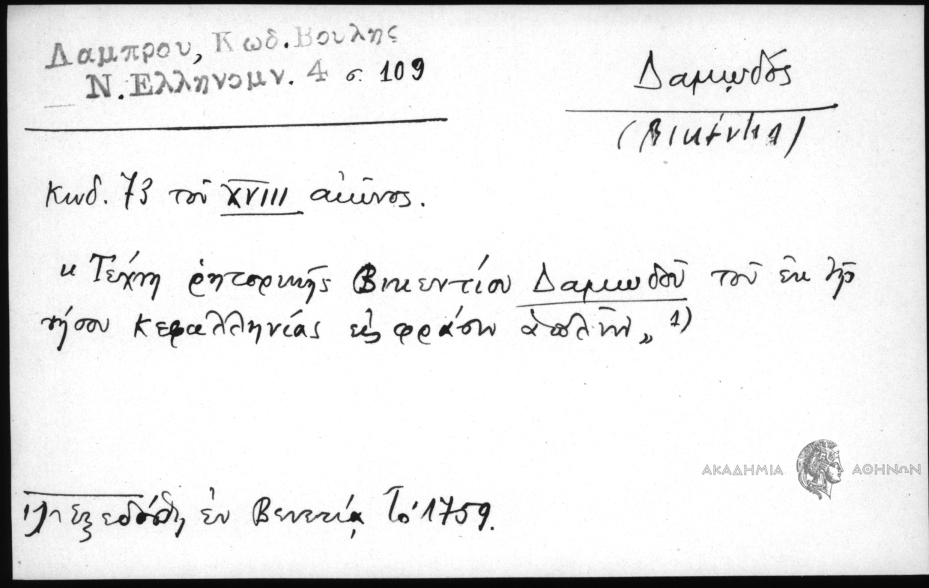 Λαμπρου, Κωδ. Βουλης
Ν. Ελληνομν. 4 σ. 109
Δαμωδός
(Βικέντιος)
Κωδ. 73 τοῦ XVIII αἰῶνος.
« Τέχνη ῥητορικῆς Βικεντίου Δαμωδοῦ τοῦ ἐκ τῆς
νήσου Κεφαλληνίας εἰς φράσιν ἁπλῆν „ 1)
ΑΚΑΔΗΜΙΑ ΑΘΗΝΩΝ
1) ἐξεδόθη ἐν Βενετίᾳ τὸ 1759.